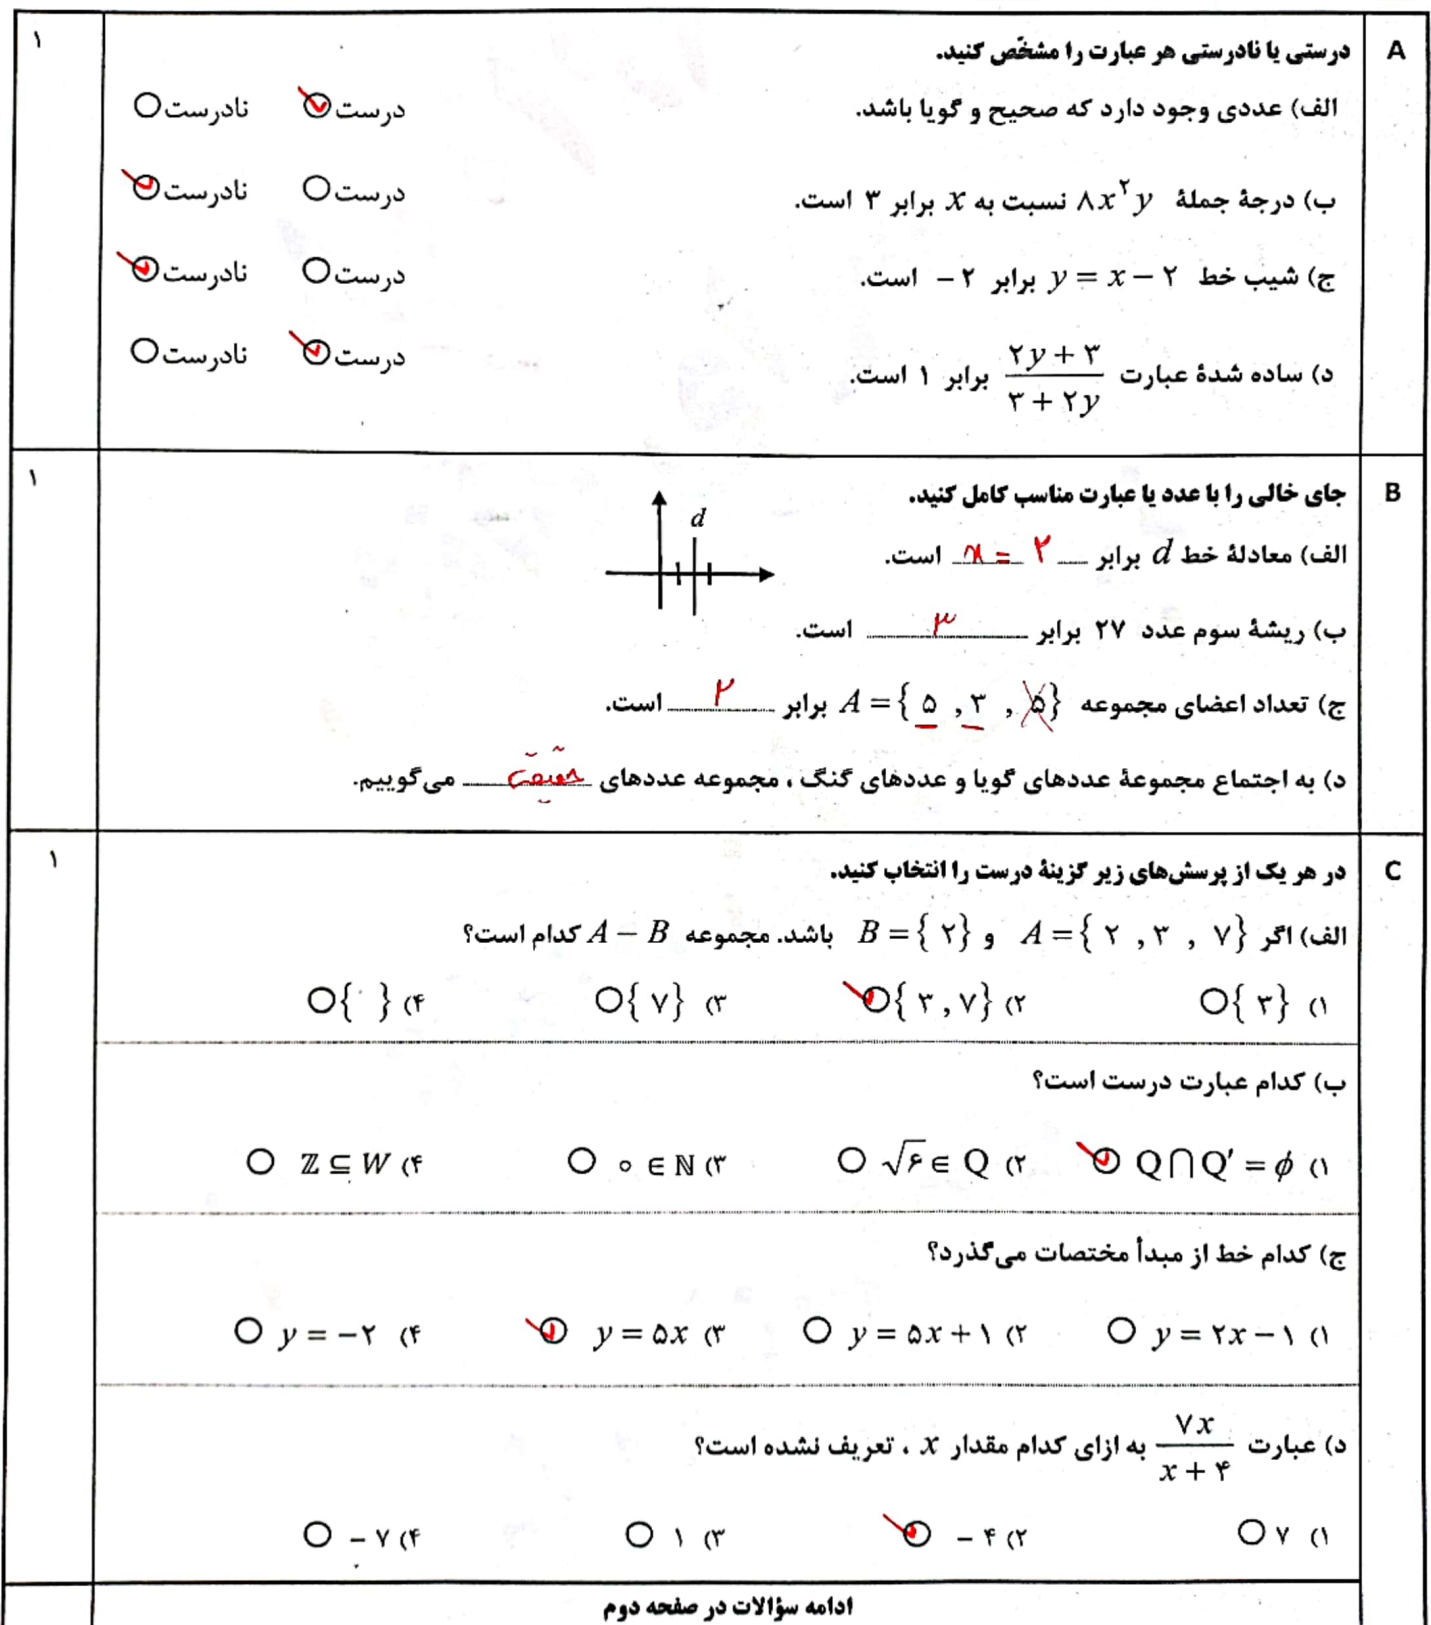 A درستی یا نادرستی هر عبارت را مشخّص کنید. ۱
الف) عددی وجود دارد که صحیح و گویا باشد. درست نادرست
ب) درجهٔ جملهٔ ۸x^۲y نسبت به x برابر ۳ است. درست نادرست
ج) شیب خط y = x − ۲ برابر ۲ − است. درست نادرست
د) ساده شدهٔ عبارت (۲y + ۳)/(۳ + ۲y) برابر ۱ است. درست نادرست
B جای خالی را با عدد یا عبارت مناسب کامل کنید. ۱
d
الف) معادلهٔ خط d برابر x = ۲ است.
ب) ریشهٔ سوم عدد ۲۷ برابر ۳ است.
ج) تعداد اعضای مجموعه A = { ۵ , ۳ , ۵} برابر ۲ است.
د) به اجتماع مجموعهٔ عددهای گویا و عددهای گنگ ، مجموعه عددهای حقیقی می‌گوییم.
C در هر یک از پرسش‌های زیر گزینهٔ درست را انتخاب کنید. ۱
الف) اگر A = { ۲ , ۳ , ۷} و B = { ۲} باشد. مجموعه A − B کدام است؟
۱) { ۳} ۲) { ۳ , ۷} ۳) { ۷} ۴) { }
ب) کدام عبارت درست است؟
۱) Q ∩ Q′ = ϕ ۲) √۶ ∈ Q ۳) ۰ ∈ ℕ ۴) ℤ ⊆ W
ج) کدام خط از مبدأ مختصات می‌گذرد؟
۱) y = ۲x − ۱ ۲) y = ۵x + ۱ ۳) y = ۵x ۴) y = −۲
د) عبارت ۷x/(x + ۴) به ازای کدام مقدار x ، تعریف نشده است؟
۱) ۷ ۲) − ۴ ۳) ۱ ۴) − ۷
ادامه سؤالات در صفحه دوم